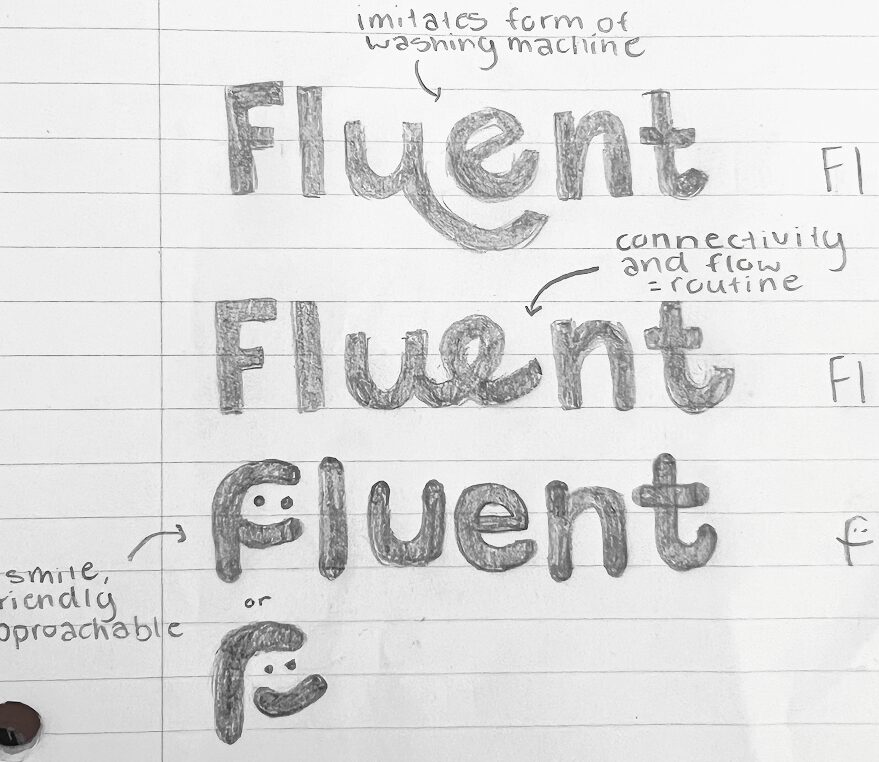 imitates form of
washing machine
Fluent
Fl
connectivity
and flow
= routine
Fluent
Fl
Fluent
smile,
riendly
pproachable
or